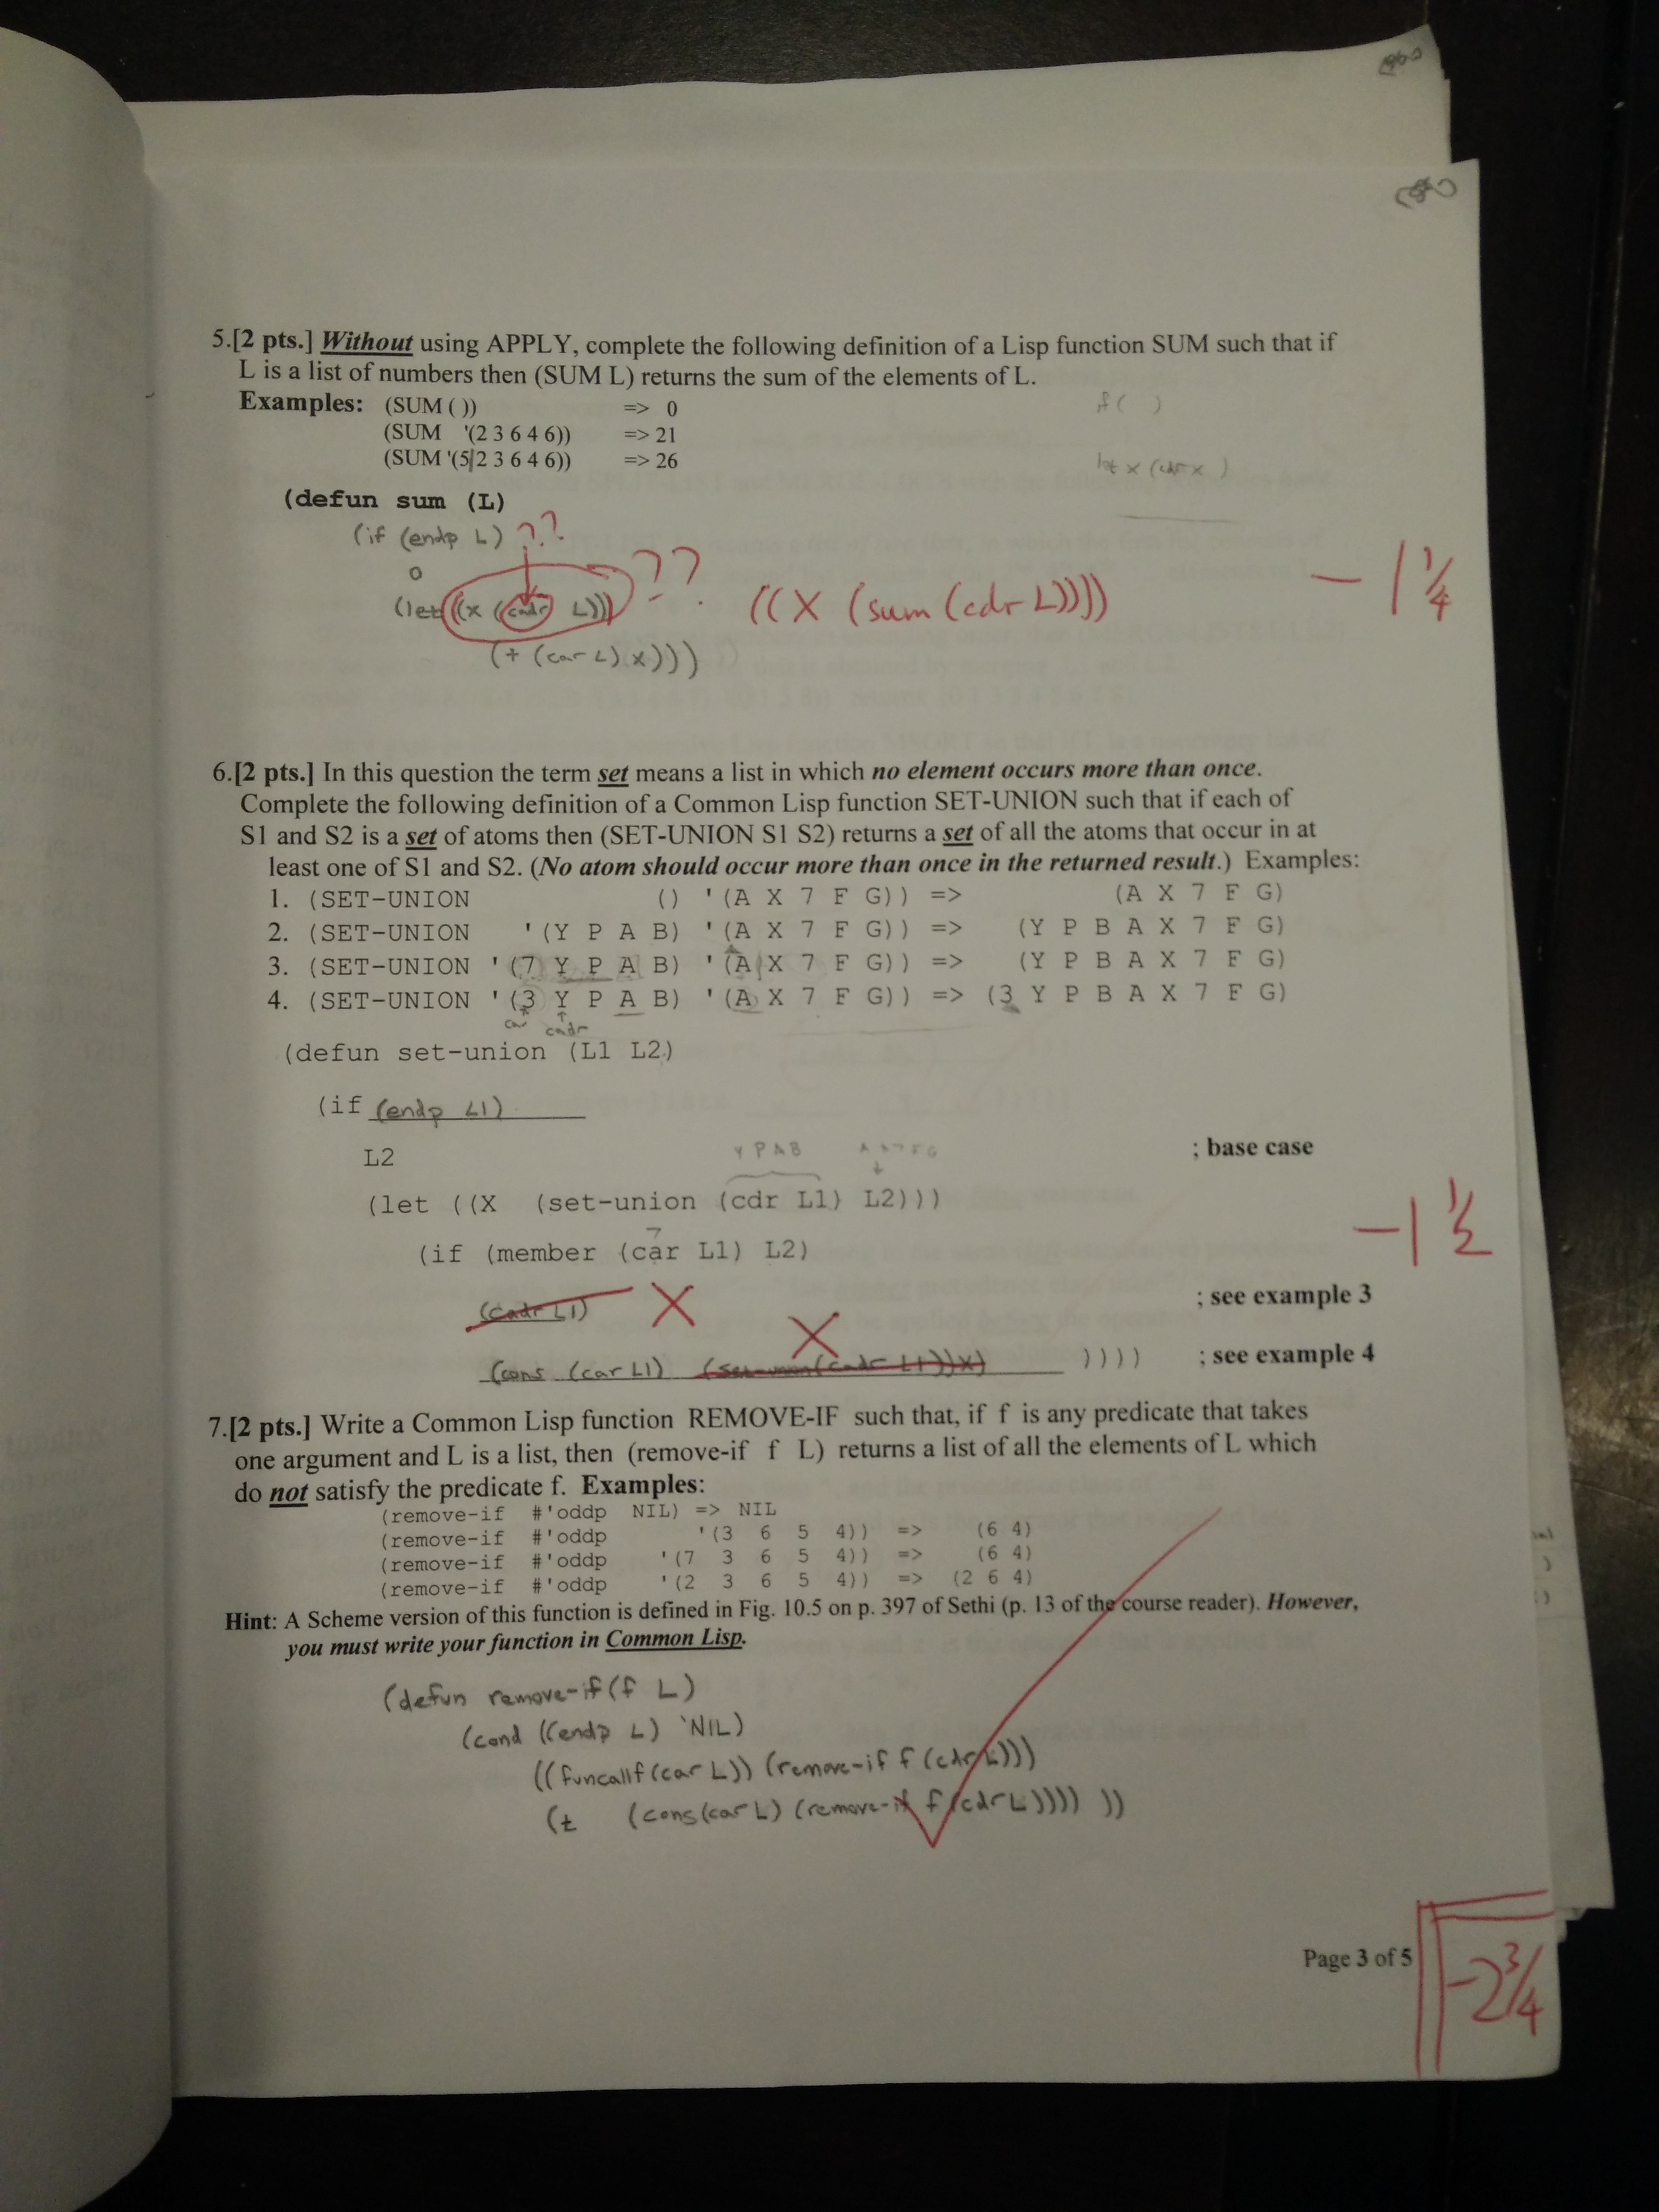 5.[2 pts.] Without using APPLY, complete the following definition of a Lisp function SUM such that if
L is a list of numbers then (SUM L) returns the sum of the elements of L.
Examples: (SUM ( )) => 0
(SUM '(2 3 6 4 6)) => 21
(SUM '(5 2 3 6 4 6)) => 26
f ( )
let x (cdr x )
(defun sum (L)
(if (endp L) ??
0
(let ((x (cadr L))) ?? ((X (sum (cdr L)))) - 1 1/4
(+ (car L) x)))
6.[2 pts.] In this question the term set means a list in which no element occurs more than once.
Complete the following definition of a Common Lisp function SET-UNION such that if each of
S1 and S2 is a set of atoms then (SET-UNION S1 S2) returns a set of all the atoms that occur in at
least one of S1 and S2. (No atom should occur more than once in the returned result.) Examples:
1. (SET-UNION () '(A X 7 F G)) => (A X 7 F G)
2. (SET-UNION '(Y P A B) '(A X 7 F G)) => (Y P B A X 7 F G)
3. (SET-UNION '(7 Y P A B) '(A X 7 F G)) => (Y P B A X 7 F G)
4. (SET-UNION '(3 Y P A B) '(A X 7 F G)) => (3 Y P B A X 7 F G)
car cadr
(defun set-union (L1 L2)
(if (endp L1)
Y P A B A X 7 F G
L2 ; base case
(let ((X (set-union (cdr L1) L2)))
7
(if (member (car L1) L2) -1 1/2
(cadr L1) X ; see example 3
X
(cons (car L1) (set-union (cadr L1))x) )))) ; see example 4
7.[2 pts.] Write a Common Lisp function REMOVE-IF such that, if f is any predicate that takes
one argument and L is a list, then (remove-if f L) returns a list of all the elements of L which
do not satisfy the predicate f. Examples:
(remove-if #'oddp NIL) => NIL
(remove-if #'oddp '(3 6 5 4)) => (6 4)
(remove-if #'oddp '(7 3 6 5 4)) => (6 4)
(remove-if #'oddp '(2 3 6 5 4)) => (2 6 4)
Hint: A Scheme version of this function is defined in Fig. 10.5 on p. 397 of Sethi (p. 13 of the course reader). However,
you must write your function in Common Lisp.
(defun remove-if (f L)
(cond ((endp L) 'NIL)
((funcall f (car L)) (remove-if f (cdr L)))
(t (cons (car L) (remove-if f (cdr L)))) ))
Page 3 of 5
-2 3/4